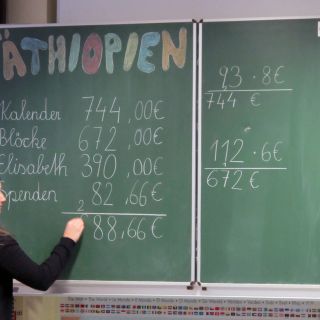 ÄTHIOPIEN
Kalender 744,00€
Blöcke 672,00€
Elisabeth 390,00€
penden 82,66€
2
88,66€
93 · 8€
744 €
112 · 6€
672€